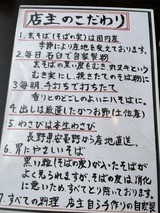 店主のこだわり
1. 玄そば(そばの実)は国内産
季節により産地を変えております。
2. 毎日 石臼で自家製粉
玄そばの黒い皮をむき丸ヌキという
むき実にし、挽きたてのそば粉に
3. 毎朝 手打ち打ちたて
香りとのどごしのよい二八そばに。
4. 出しは厳選したかつお節(土佐産)
5. わさびは本生わさび
長野県安曇野から産地直送
6. 胃にやさしいそば
黒い粒(そばの皮)が入ったそばが
よく見られますが、そばの皮は、消化
に悪いため、すべてとり除いております。
7. すべての料理 店主自ら手作りの自家製